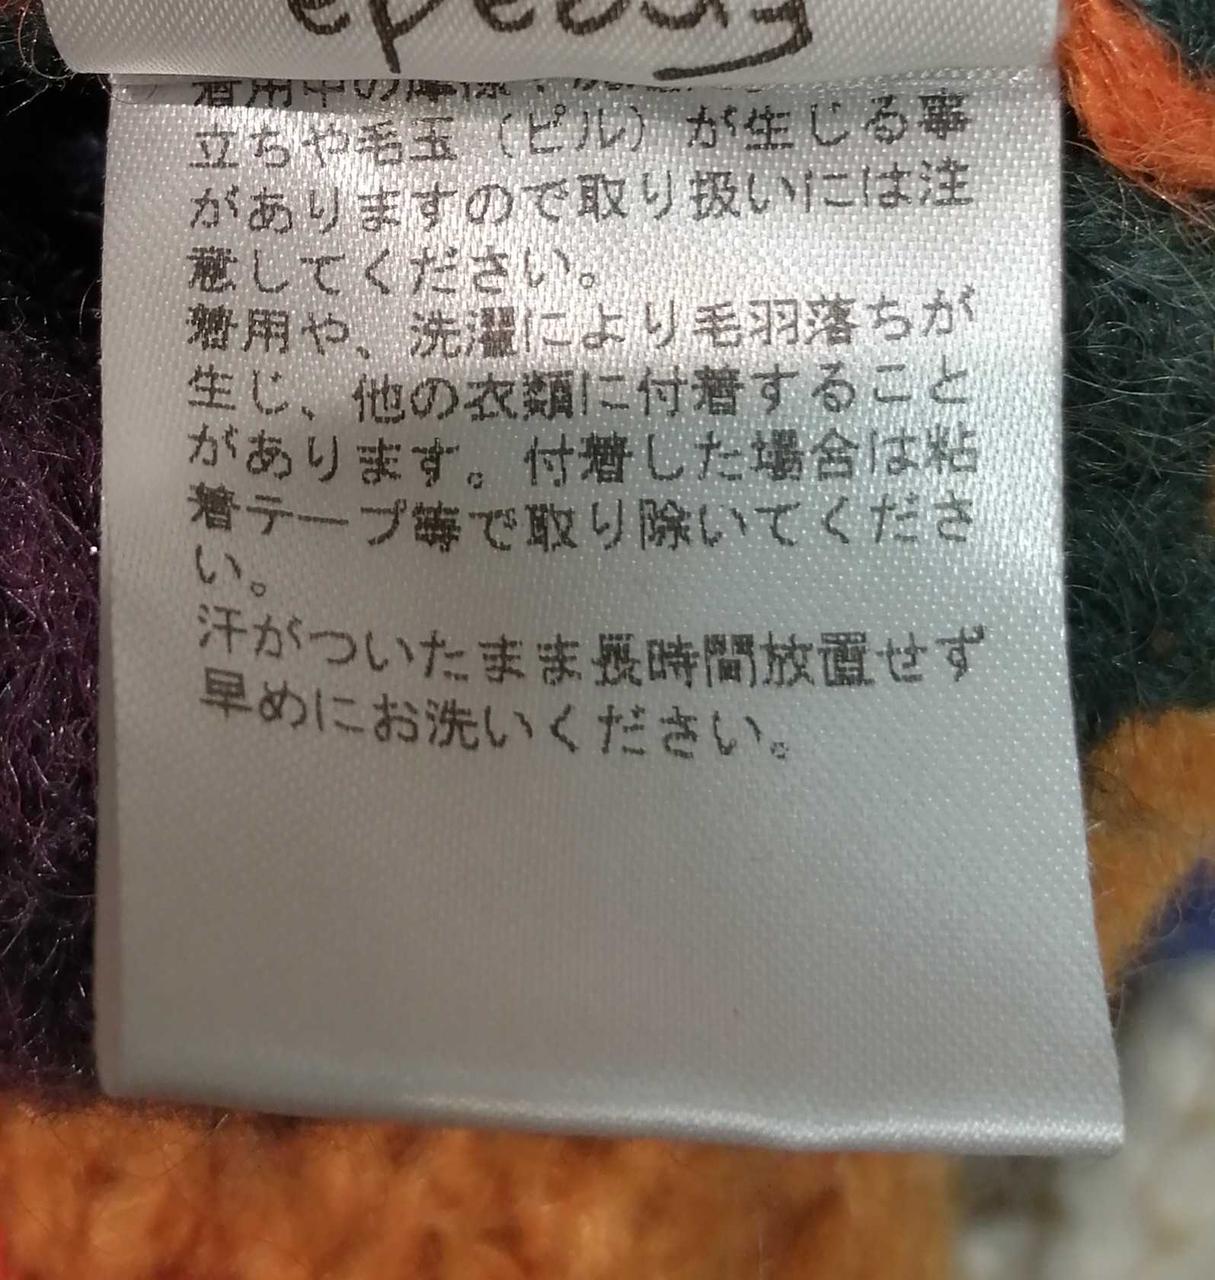 着用中の摩擦
立ちや毛玉（ピル）が生じる事
がありますので取り扱いには注
意してください。
着用や、洗濯により毛羽落ちが
生じ、他の衣類に付着すること
があります。付着した場合は粘
着テープ等で取り除いてくださ
い。
汗がついたまま長時間放置せず
早めにお洗いください。